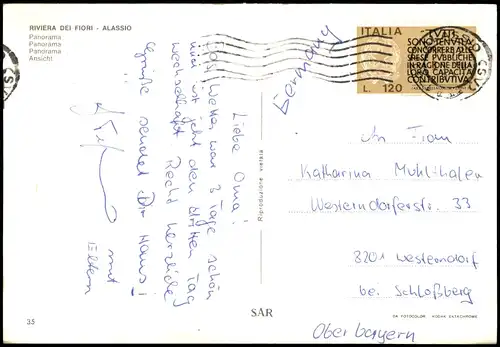 RIVIERA DEI FIORI - ALASSIO
Panorama
Panoràma
Panorama
Ansicht
Liebe Oma!
Das Wetter war 3 Tage schön
und ist jetzt den dritten Tag
wechselhaft. Recht herzliche
Grüße sendet Dir Hans!
mit
Eltern
Germany
ITALIA
SONO TENUTI A
CONCORRERE ALLE
SPESE PUBBLICHE
IN RAGIONE DELLA
LORO CAPACITÀ
CONTRIBUTIVA
L. 120
An Frau
Katharina Mühlthaler
Westerndorferstr. 33
8201 Westerndorf
bei Schloßberg
Oberbayern
Riproduzione vietata
SAR
35
FOTOCOLOR KODAK EKTACHROME